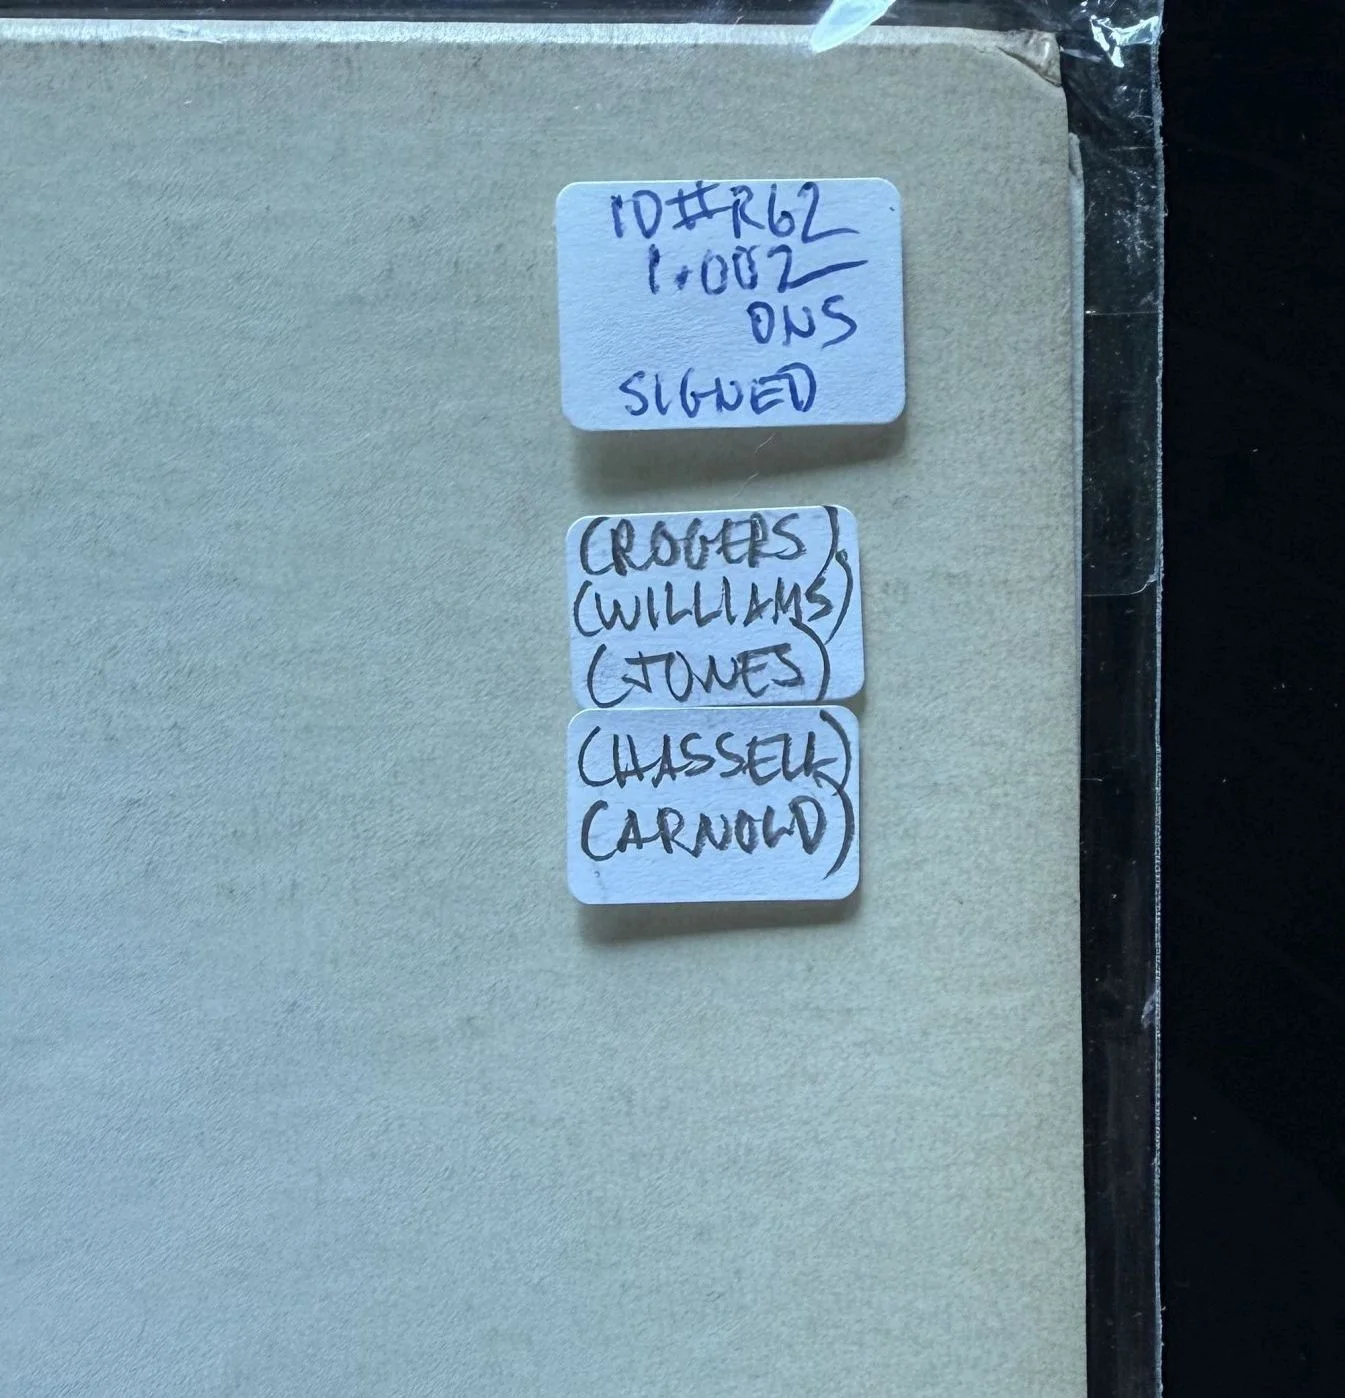 ID#R62
1.002
ONS
SIGNED
(ROGERS)
(WILLIAMS)
(JONES)
(HASSELL)
(ARNOLD)